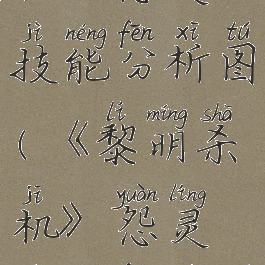 jì néng fēn xī tú
技能分析图
lí míng shā
(《黎明杀
jī yuàn líng
机》 怨灵